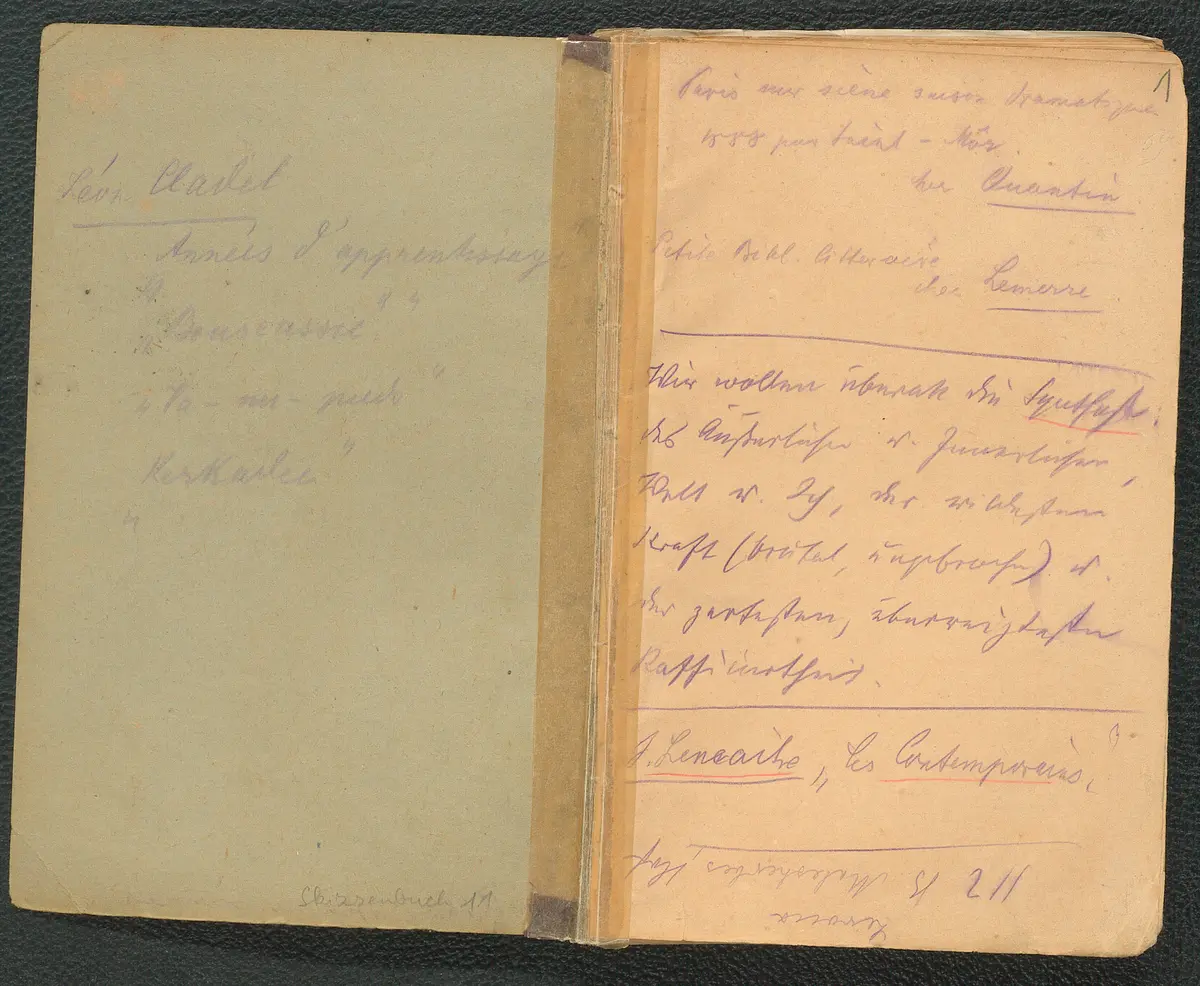 Léon Cladel
Années d'apprentissage
"Bouscassié"
"Va-nu-pieds"
Kerkadec "
Skizzenbuch 11
1
Paris sur scène saison dramatique
1888 par Saint-Mór
chez Quantin
Petite Bibl. litteraire
chez Lemerre
Wir wollen überall die Synthese:
des Äußerlichen u. Innerlichen,
Welt u. Ich, der wildesten
Kraft (brutal, ungebrochen) u.
der zartesten, überreiztesten
Raffinirtheit.
J. Lemaître, "les Contemporains"
112 B Malesherbes